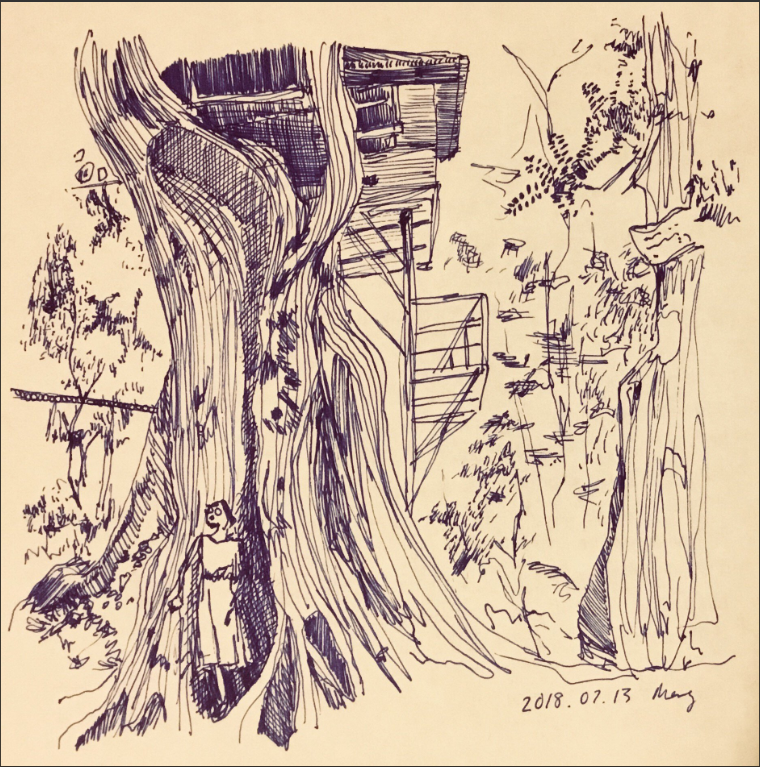 2018.07.13 Meng